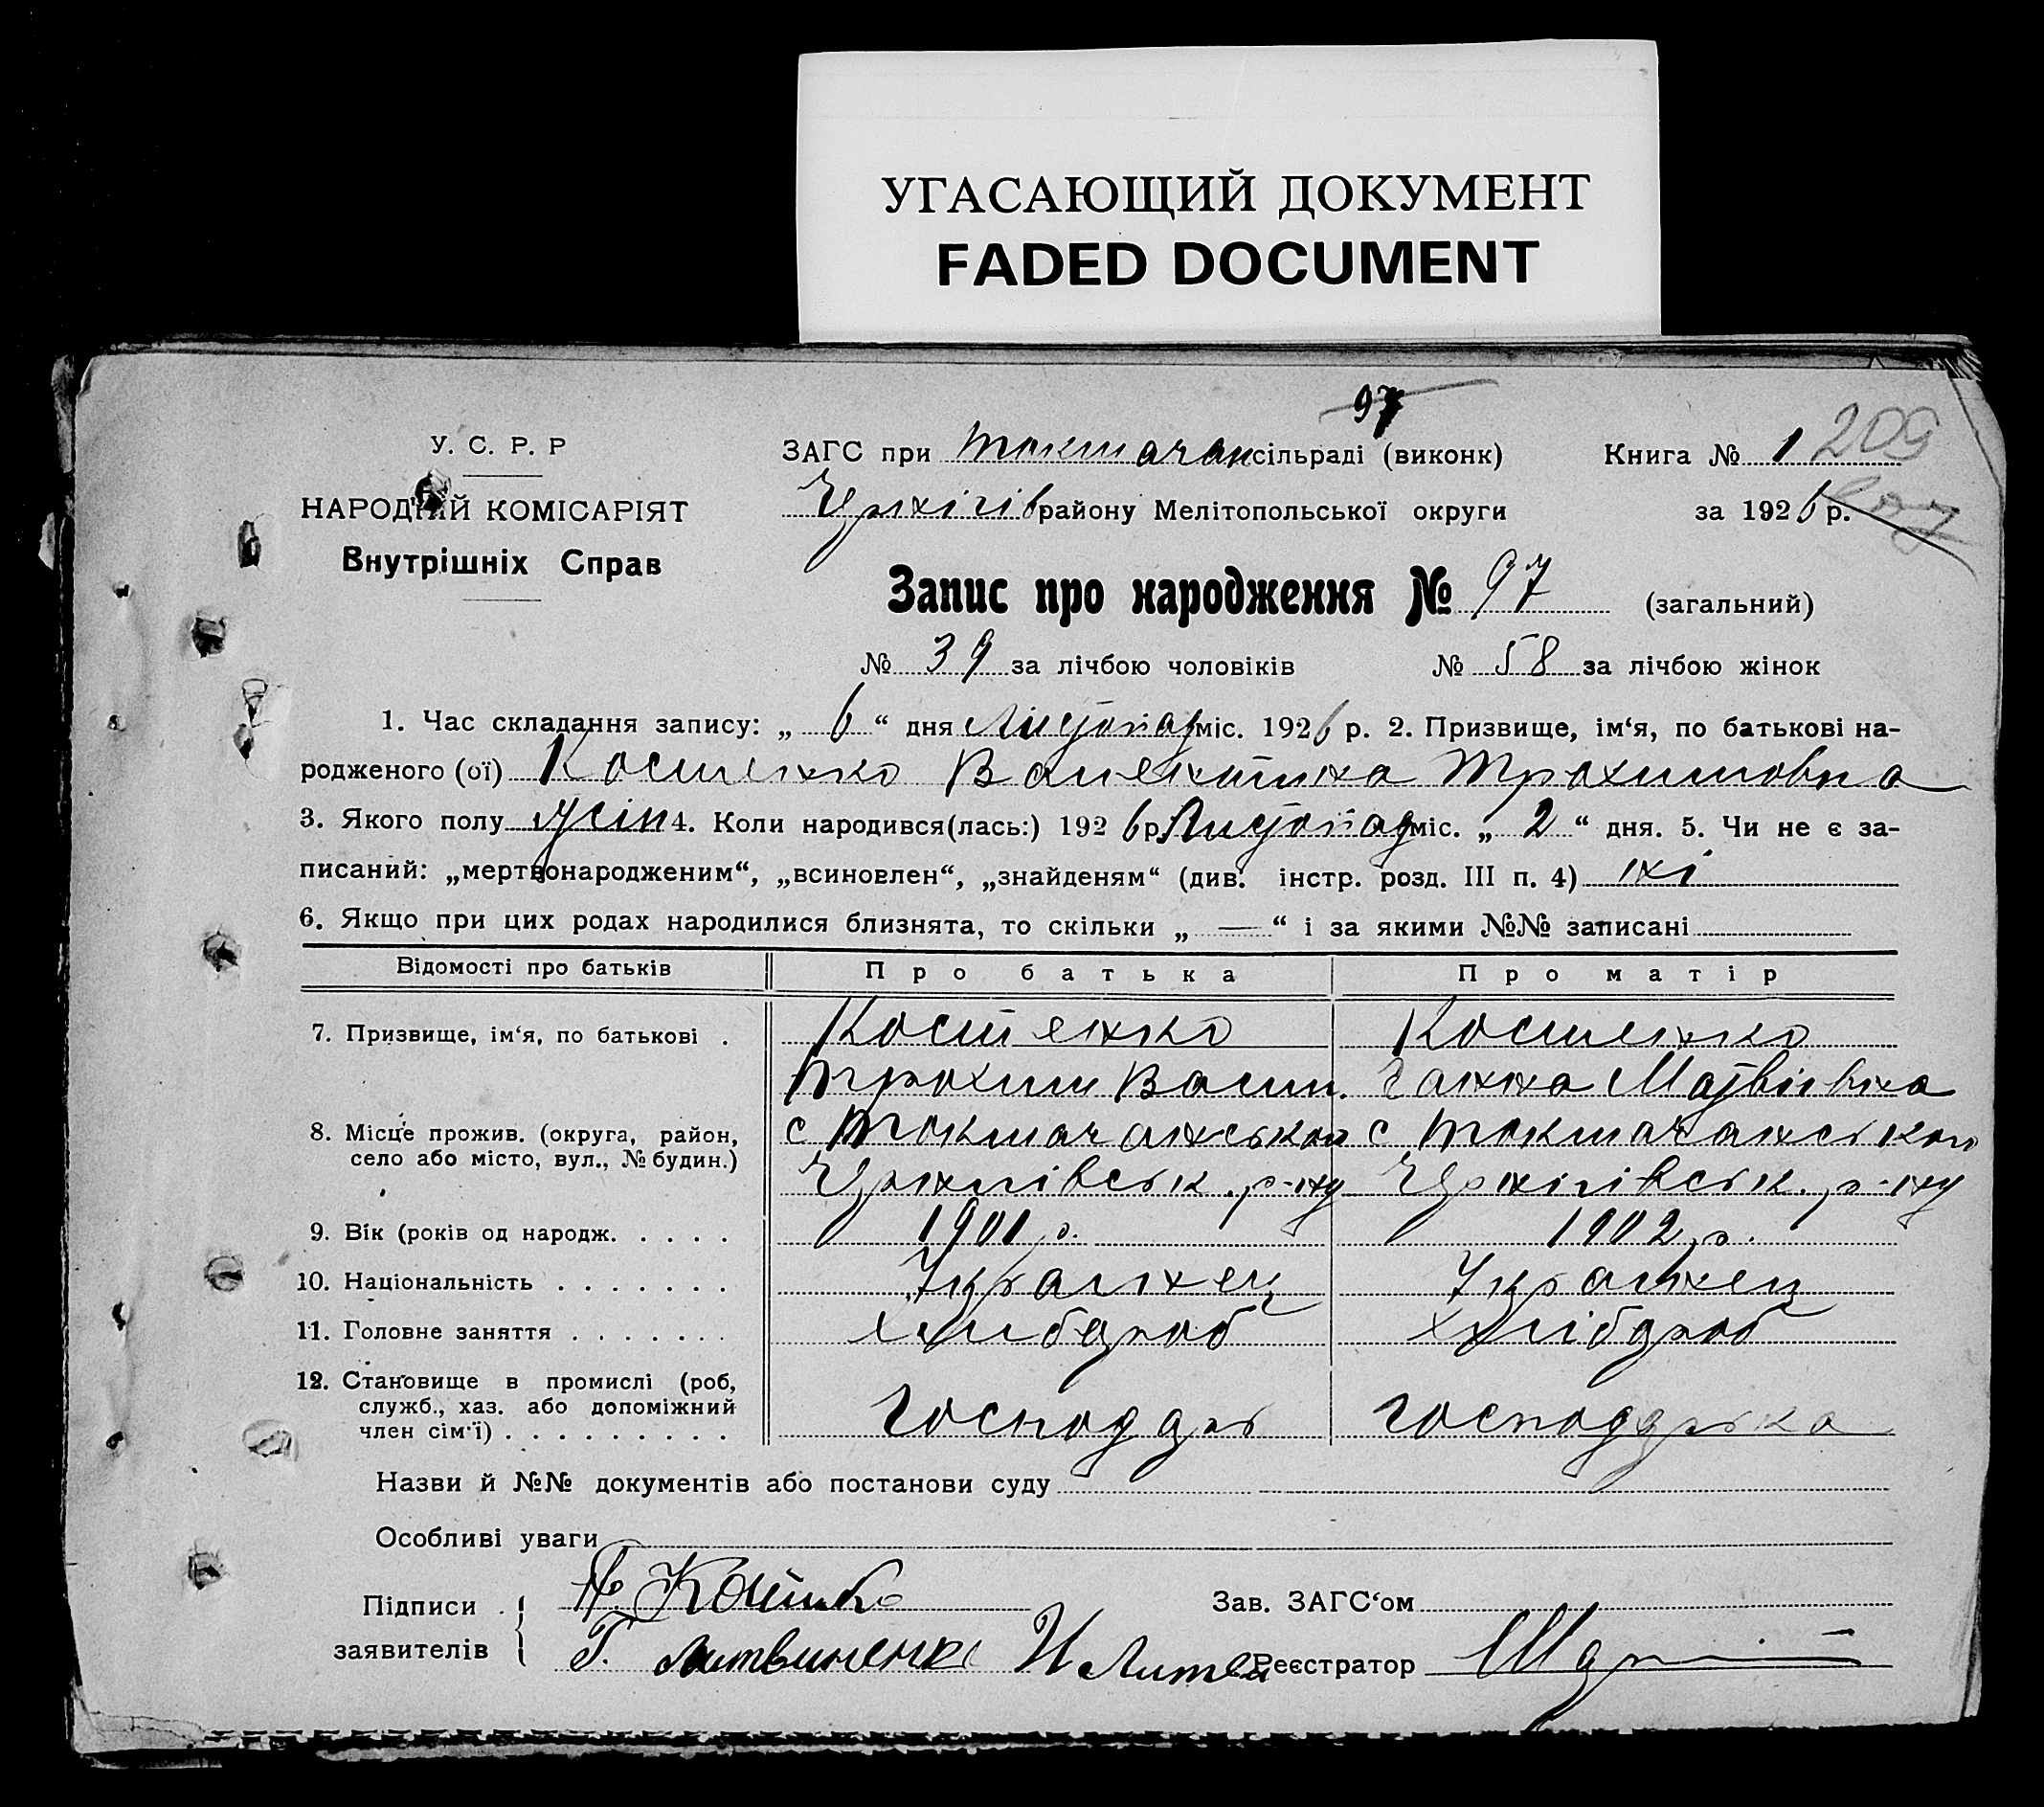 УГАСАЮЩИЙ ДОКУМЕНТ
FADED DOCUMENT
97
У. С. Р. Р
ЗАГС при Токмачан сільраді (виконк)
Книга № 1 209
НАРОДНІЙ КОМІСАРІЯТ
Чернігів району Мелітопольської округи
за 1926 р. 207
Внутрішніх Справ
Запис про народження № 97 (загальний)
№ 39 за лічбою чоловіків № 58 за лічбою жінок
1. Час складання запису: „ 6 “ дня Листопад міс. 1926 р. 2. Призвище, ім‘я, по батькові на-
родженого (ої) Костенко Валентина Трохимовна
3. Якого полу жін 4. Коли народився(лась:) 1926 р. Листопад міс. „ 2 “ дня. 5. Чи не є за-
писаний: „мертвонародженим“, „всиновлен“, „знайденям“ (див. інстр. розд. III п. 4) ні
6. Якщо при цих родах народилися близнята, то скільки „ — “ і за якими №№ записані
Відомості про батьків Про батька Про матір
7. Призвище, ім‘я, по батькові . Костенко Костенко
Трохим Васил. Ганна Матвіївна
8. Місце прожив. (округа, район, с Токмачанськоп с Токмачанськоп
село або місто, вул., № будин.)
Чернигівськ. р-ну Чернігівськ. р-ну
9. Вік (років од народж. . . . . 1901 р. 1902 р.
10. Національність . . . . . . . Українец Українец
11. Головне заняття . . . . . . . хлибороб хлібороб
12. Становище в промислі (роб,
служб., хаз. або допоміжний господарь господарька
член сім‘ї) . . . . . . . . .
Назви й №№ документів або постанови суду
Особливі уваги
Підписи
Зав. ЗАГС‘ом
заявителів Г. Литвиненко И Литви Реєстратор